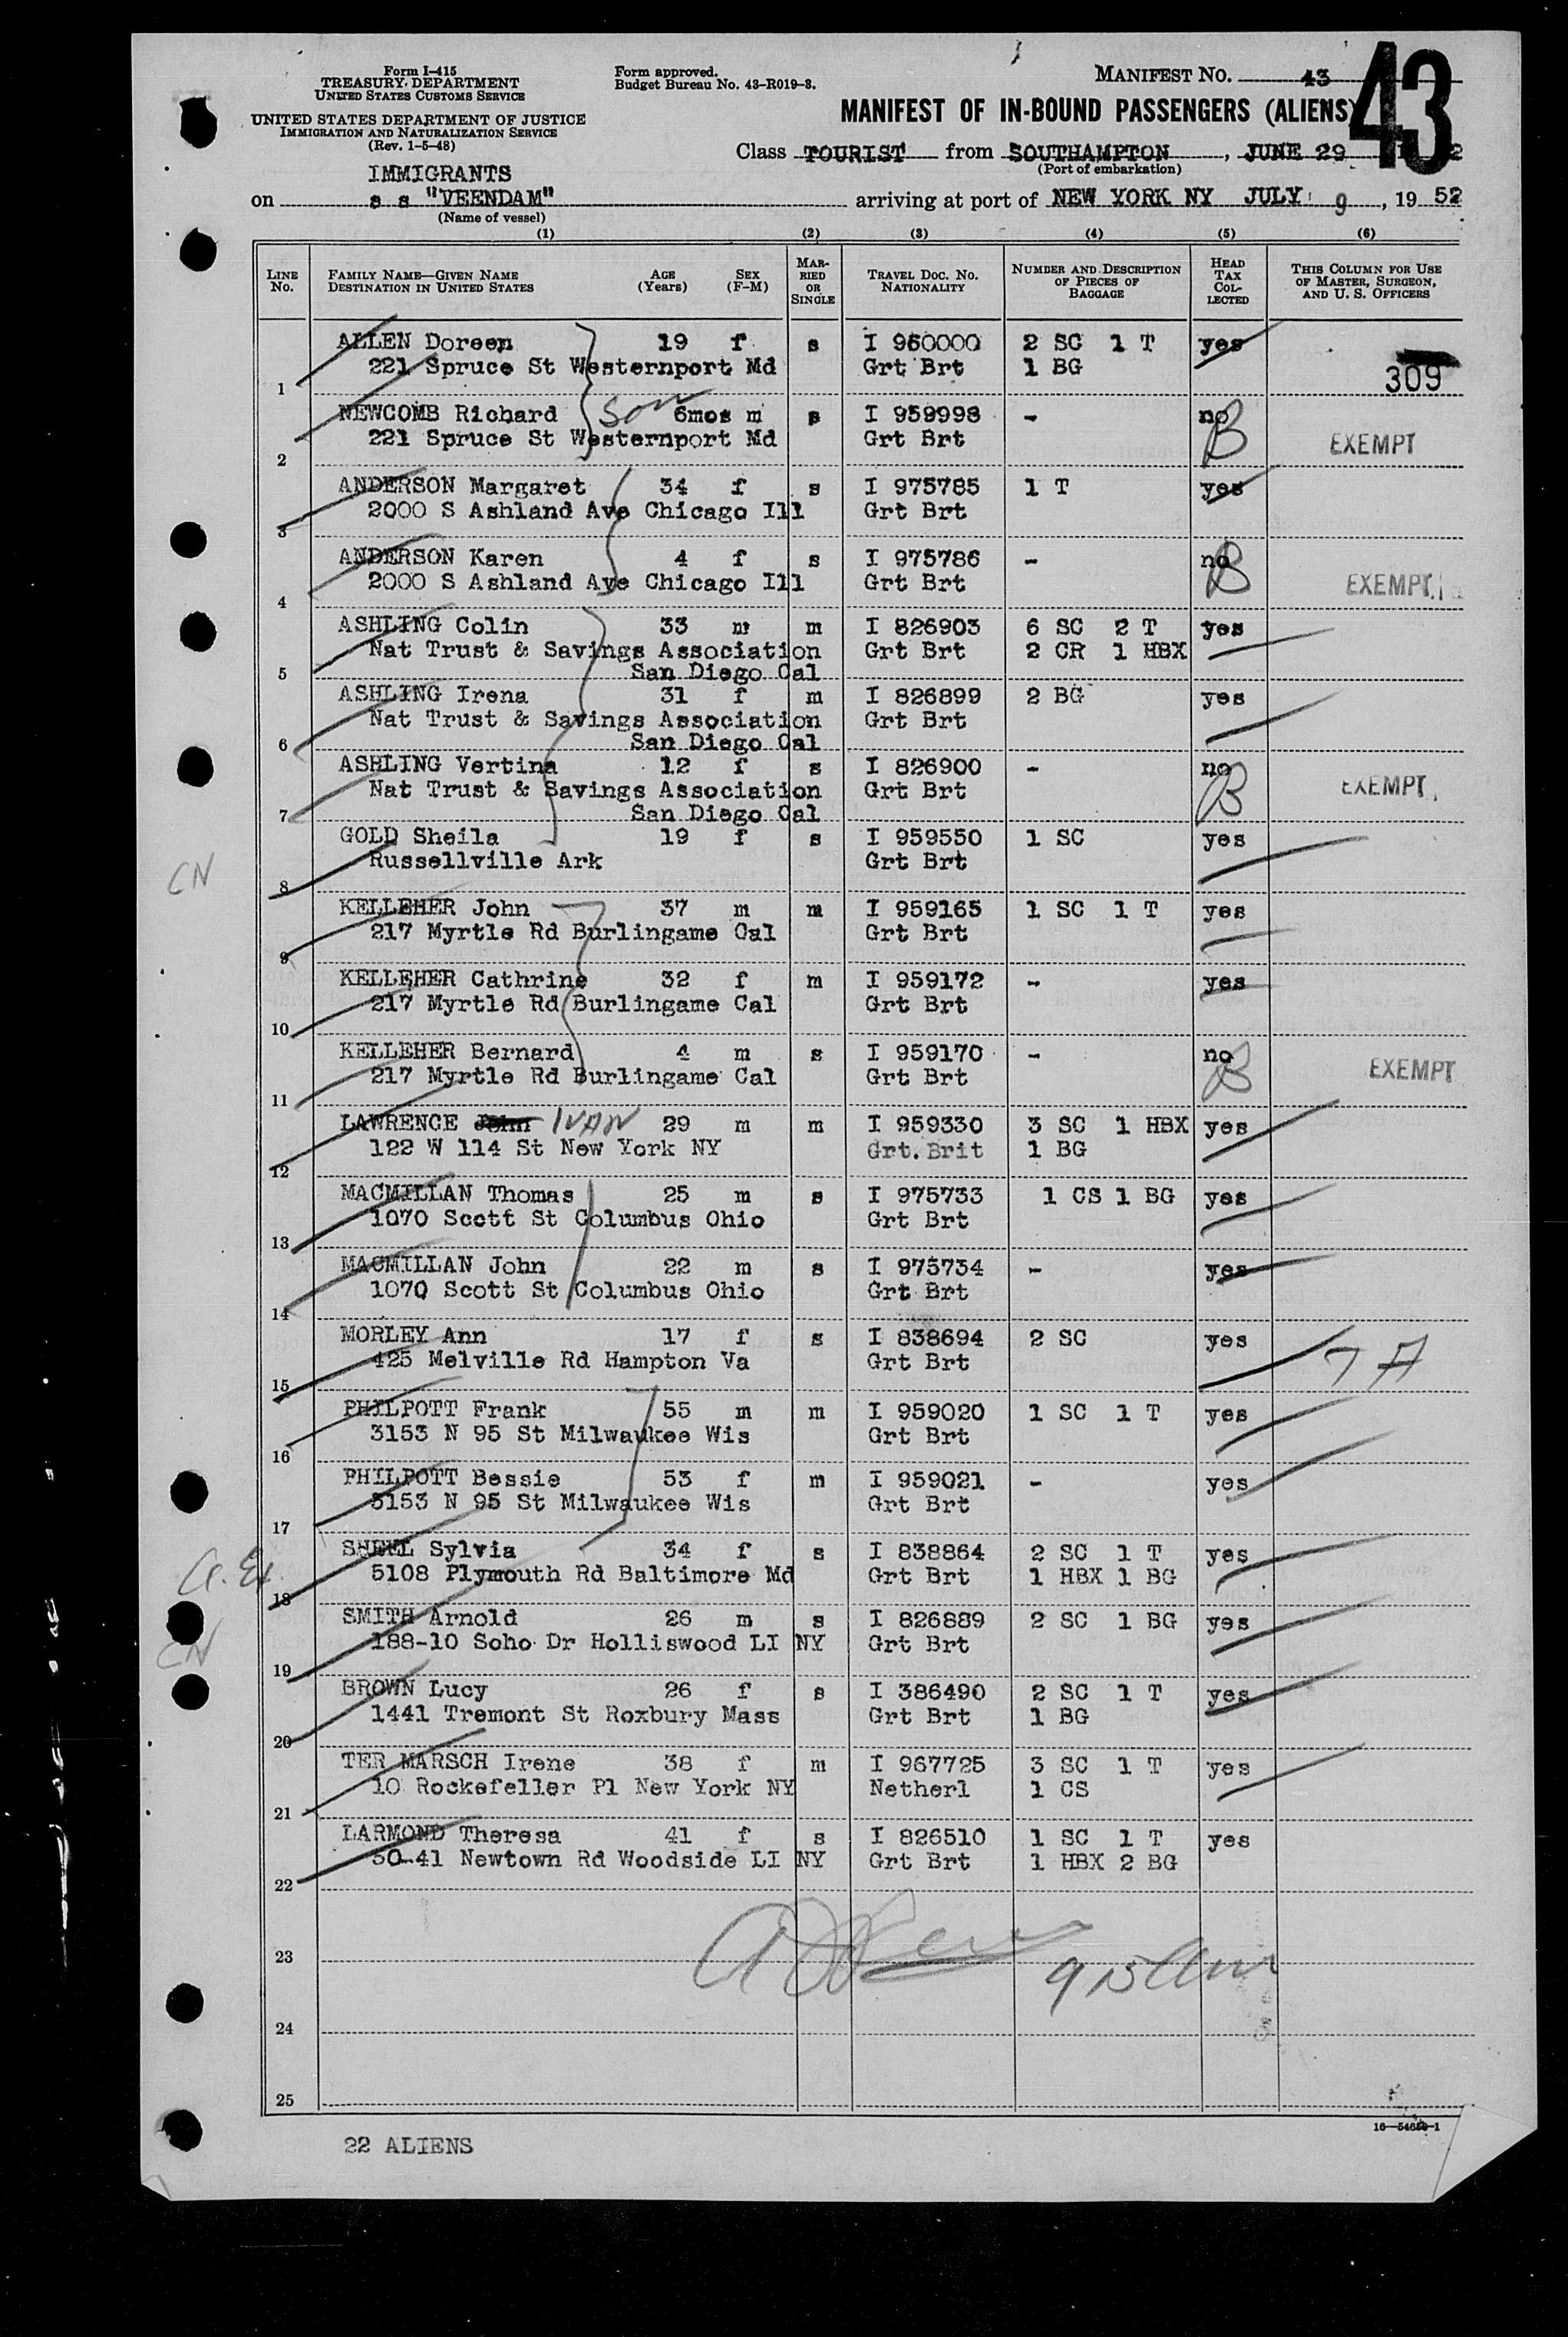 Form I-415
TREASURY DEPARTMENT
UNITED STATES CUSTOMS SERVICE
UNITED STATES DEPARTMENT OF JUSTICE
IMMIGRATION AND NATURALIZATION SERVICE
(Rev. 1-5-48)
Form approved.
Budget Bureau No. 43-R019-3.
MANIFEST NO. 43
43
MANIFEST OF IN-BOUND PASSENGERS (ALIENS)
Class TOURIST from SOUTHAMPTON, JUNE 29
(Port of embarkation)
IMMIGRANTS
on s s "VEENDAM" arriving at port of NEW YORK NY JULY 9, 19 52
(Name of vessel)
(1) (2) (3) (4) (5) (6)
LINE No. FAMILY NAME—GIVEN NAME DESTINATION IN UNITED STATES AGE (Years) SEX (F-M) MARRIED OR SINGLE TRAVEL DOC. NO. NATIONALITY NUMBER AND DESCRIPTION OF PIECES OF BAGGAGE HEAD TAX COLLECTED THIS COLUMN FOR USE OF MASTER, SURGEON, AND U. S. OFFICERS
ALLEN Doreen 19 f s I 960000 2 SC 1 T yes
221 Spruce St Westernport Md Grt Brt 1 BG 309
1
NEWCOMB Richard son 6mos m s I 959998 - no B
221 Spruce St Westernport Md Grt Brt EXEMPT
2
ANDERSON Margaret 34 f s I 975785 1 T yes
2000 S Ashland Ave Chicago Ill Grt Brt
3
ANDERSON Karen 4 f s I 975786 - no B
2000 S Ashland Ave Chicago Ill Grt Brt EXEMPT
4
ASHLING Colin 33 m m I 826903 6 SC 2 T yes
Nat Trust & Savings Association Grt Brt 2 CR 1 HBX
5 San Diego Cal
ASHLING Irena 31 f m I 826899 2 BG yes
Nat Trust & Savings Association Grt Brt
6 San Diego Cal
ASHLING Vertina 12 f s I 826900 - no B
Nat Trust & Savings Association Grt Brt EXEMPT
7 San Diego Cal
GOLD Sheila 19 f s I 959550 1 SC yes
Russellville Ark Grt Brt
CN 8
KELLEHER John 37 m m I 959165 1 SC 1 T yes
217 Myrtle Rd Burlingame Cal Grt Brt
9
KELLEHER Cathrine 32 f m I 959172 - yes
217 Myrtle Rd Burlingame Cal Grt Brt
10
KELLEHER Bernard 4 m s I 959170 - no B
217 Myrtle Rd Burlingame Cal Grt Brt EXEMPT
11
LAWRENCE John IVAN 29 m m I 959330 3 SC 1 HBX yes
122 W 114 St New York NY Grt. Brit 1 BG
12
MACMILLAN Thomas 25 m s I 975733 1 CS 1 BG yes
1070 Scott St Columbus Ohio Grt Brt
13
MACMILLAN John 22 m s I 975734 - yes
1070 Scott St Columbus Ohio Grt Brt
14
MORLEY Ann 17 f s I 838694 2 SC yes
425 Melville Rd Hampton Va Grt Brt 7 A
15
PHILPOTT Frank 55 m m I 959020 1 SC 1 T yes
3153 N 95 St Milwaukee Wis Grt Brt
16
PHILPOTT Bessie 53 f m I 959021 - yes
3153 N 95 St Milwaukee Wis Grt Brt
17
SHEEL Sylvia 34 f s I 838864 2 SC 1 T yes
5108 Plymouth Rd Baltimore Md Grt Brt 1 HBX 1 BG
18
SMITH Arnold 26 m s I 826889 2 SC 1 BG yes
188-10 Soho Dr Holliswood LI NY Grt Brt
CN 19
BROWN Lucy 26 f s I 386490 2 SC 1 T yes
1441 Tremont St Roxbury Mass Grt Brt 1 BG
20
TER MARSCH Irene 38 f m I 967725 3 SC 1 T yes
10 Rockefeller Pl New York NY Netherl 1 CS
21
LARMOND Theresa 41 f s I 826510 1 SC 1 T yes
50-41 Newtown Rd Woodside LI NY Grt Brt 1 HBX 2 BG
22
23
9 15 am
24
25
22 ALIENS